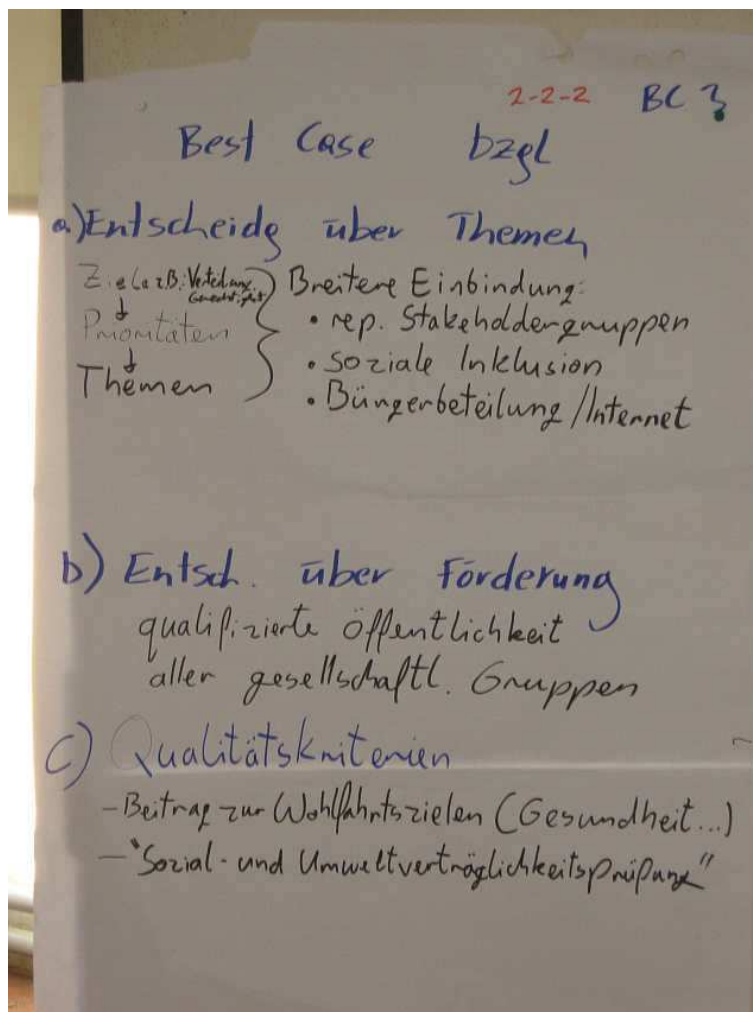 2-2-2 BC 3
Best Case bzgl
a) Entscheidg über Themen
Ziele (z.B. Verteilung.
Gerechtigkeit)
↓
Prioritäten
↓
Themen
Breitere Einbindung:
• rep. Stakeholdergruppen
• soziale Inklusion
• Bürgerbeteilung/Internet
b) Entsch. über Förderung
qualifizierte öffentlichkeit
aller gesellschaftl. Gruppen
c) Qualitätskriterien
- Beitrag zur Wohlfahrtszielen (Gesundheit...)
- "Sozial- und Umweltverträglichkeitsprüfung"